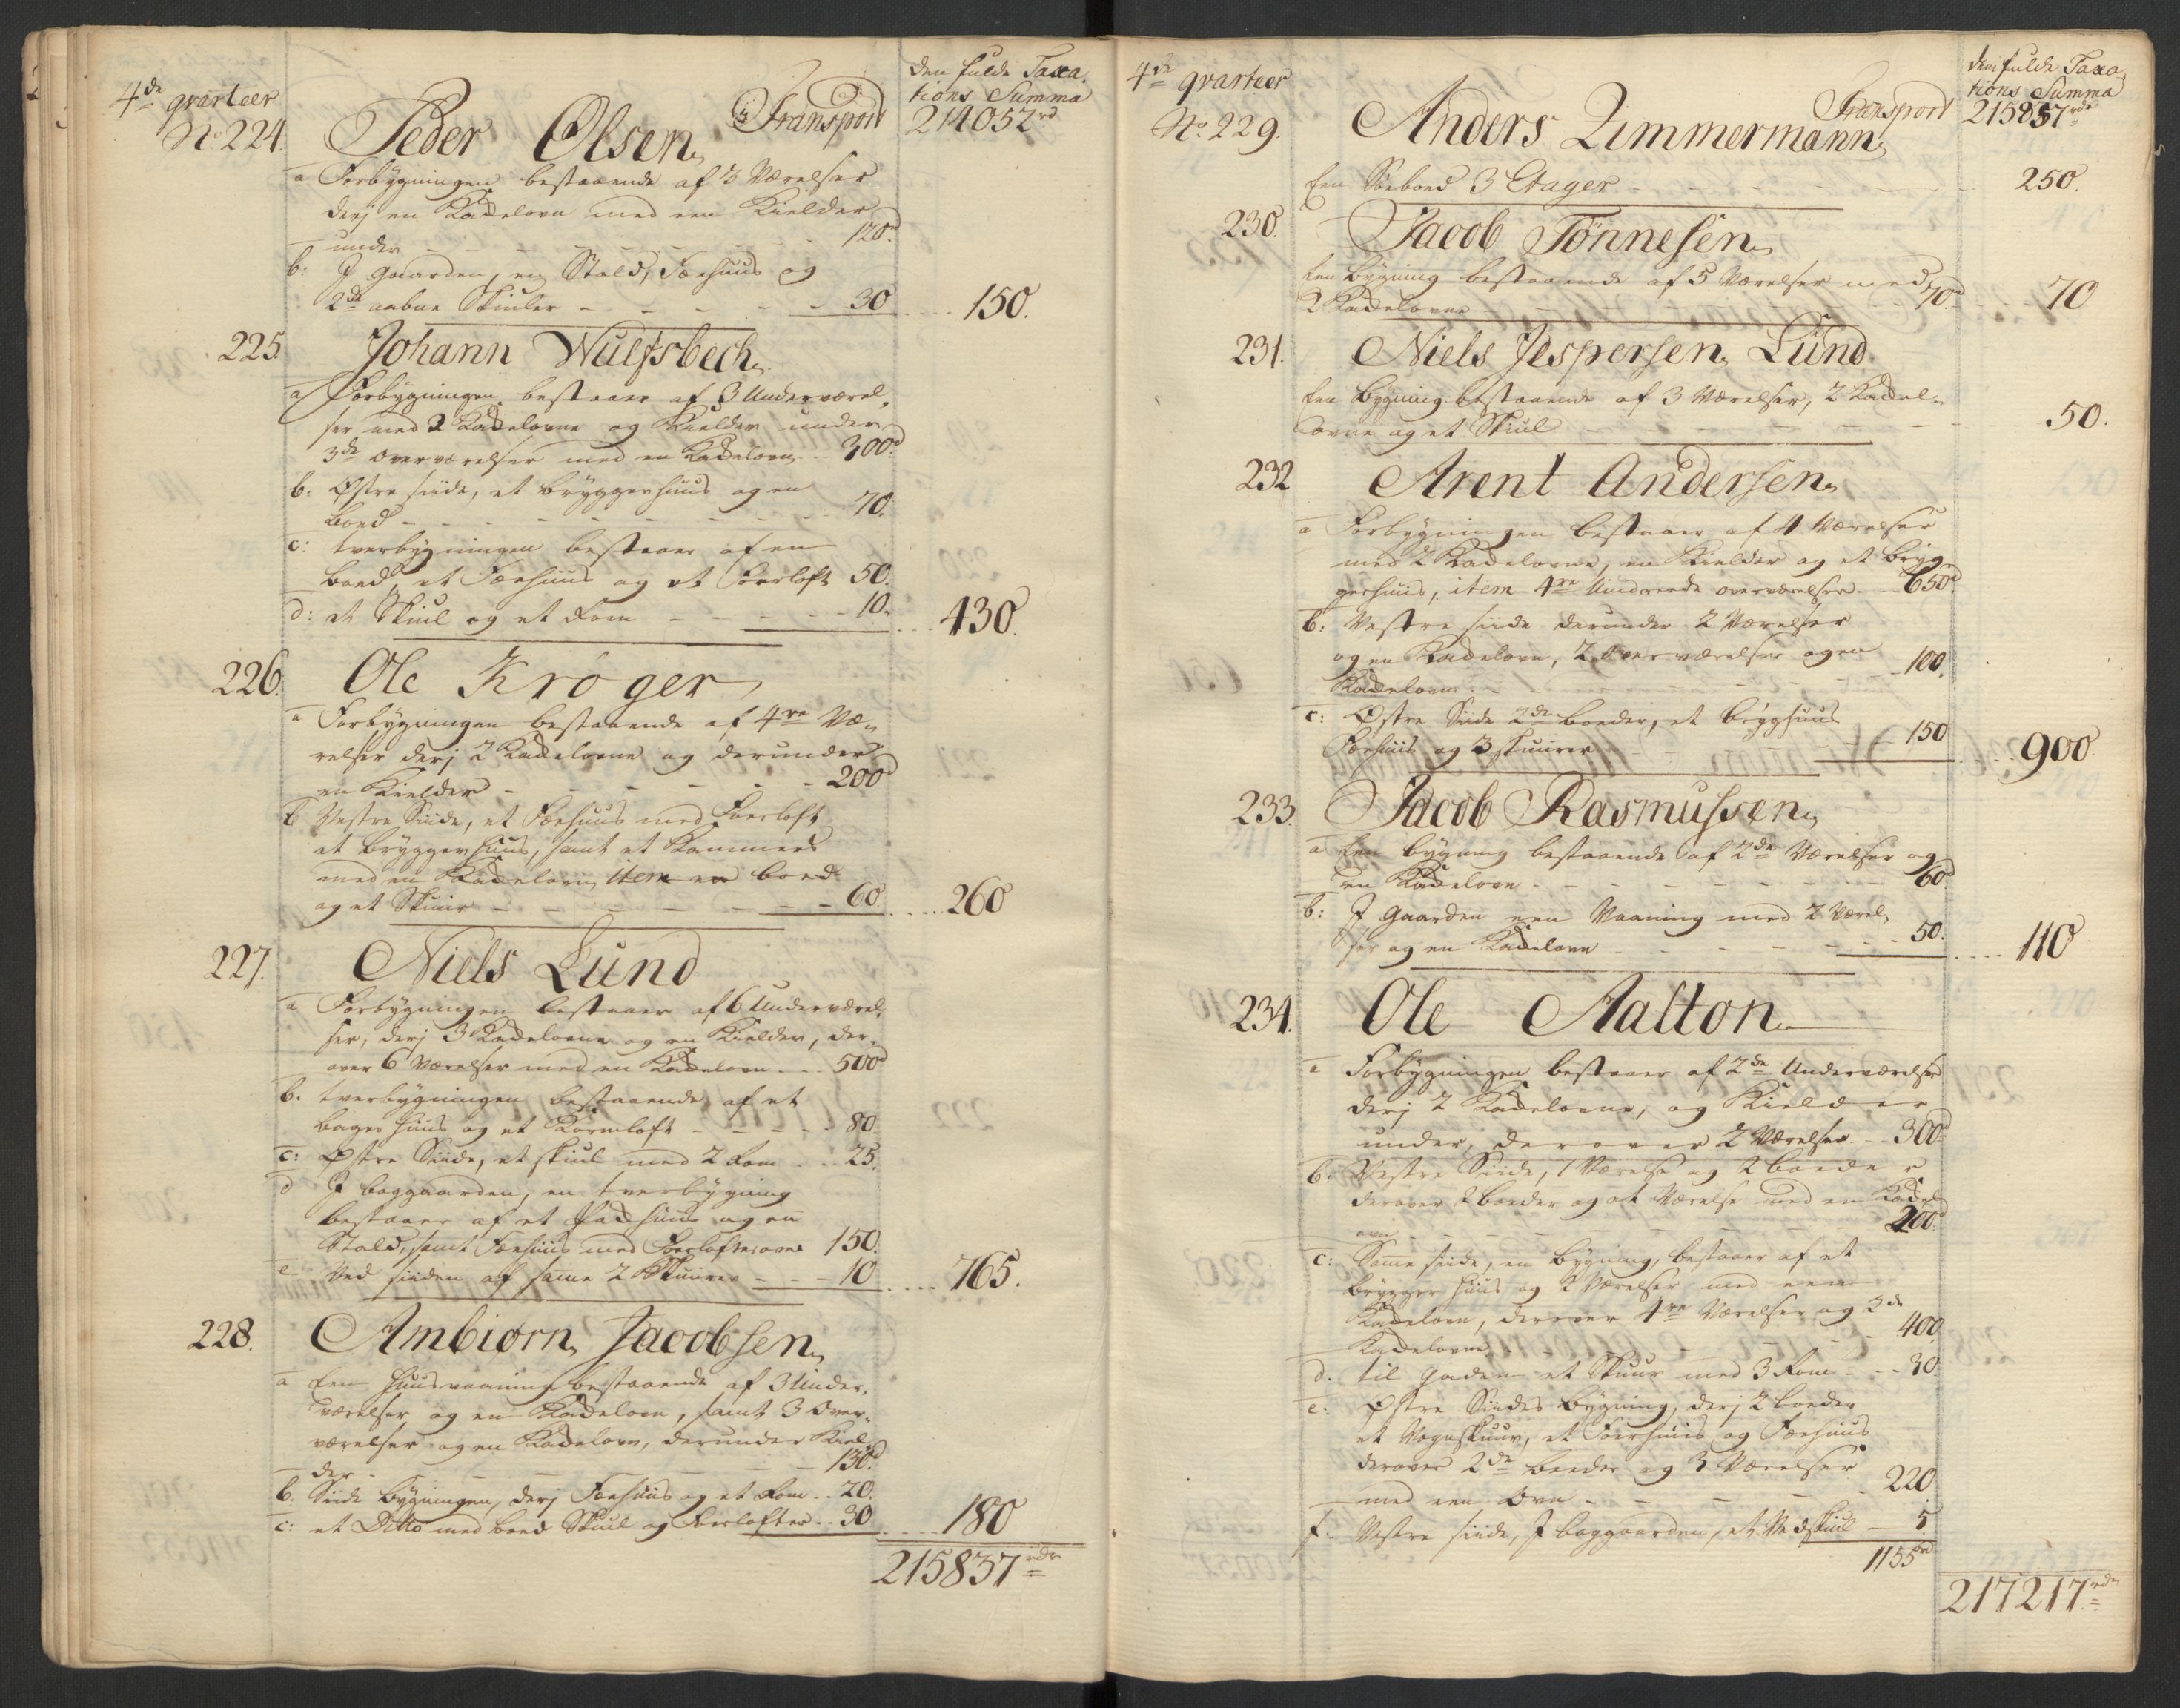 4de qvarteer
den fulde Taxa-
tions Summa
No. 224. Peder Olsen Transport 214052rd
a Forbygningen bestaaende af 3 Værelser
derj en Kadelovn med een Kielder
under - - - 120rd
b: J Gaarden, en Stald, Fæehuus og
2de aabne Skiuler - - - 30 150.
225. Johann Wulfsbech
a Forbygningen bestaaer af 3 Underværel-
ser med 2 Kadelovne og Kielder under
3de Overværelser med en Kadelovn 300d
b: Østre siide, et bryggerhuus og en
boed - - - 70.
c: tverbygningen bestaaer af en
boed, et Fæehuus og et Foerloft 50.
d: et Skiul og et Rom - - - 10. 430.
226. Ole Krøger
a Forbygningen bestaaende af 4re Væ-
relser derj 2 Kadelovne og derunder
en Kielder - - - 200d
b Vestre Siide, et Fæehuus med Foerloft
et bryggerhuus, samt et Kammers
med en Kadelovn item en boed
og et Skuur - - - 60 260
227. Niels Lund
a Forbygningen bestaaer af 6 Underværel-
ser, derj 3 Kadelovne og en Kielder, der-
over 6 Værelser med en Kadelovn 500d
b. tverbygningen bestaaende af et
bagerhuus og et Kornloft - - - 80.
c: Østre Siide, et skiul med 2 Rom 25.
d J baggaarden, en tverbygning
bestaaer af et Padhuus og en
Stald, samt Fæehuus med Foerloft ovr 150.
e Ved siiden af samme 2 Skuurer - - - 10 765.
228. Ambiørn Jacobsen
a Een huusvaaning bestaaende af 3 Under-
værelser og en Kadelovn, samt 3 Over-
værelser og en Kadelovn, derunder Kiel-
der - - - 130d
b. Siide bygningen, derj Fæehuus og et Rom 20.
c: et Ditto med boed Skiul og Foerlofter 30 180
215837rdr
4de qvarteer
den fulde Taxa-
tions Summa
No. 229. Anders Zimmermann Transport 215837rdr
Een Søeboed 3 Etager - - - 250.
230. Jacob Tønnesen
Een bygning bestaaende af 5 Værelser med
2 Kadelovne 70d 70
231. Niels Jespersen Lund
Een bygning bestaaende af 3 Værelser, 2 Kadel-
ovne og et Skiul - - - 50.
232 Arent Andersen
a Forbygningen bestaaer af 4 Værelser
med 2 Kadelovne, en Kielder og et bryg-
gerhuus, item 4re Uindreede Overværelser 650d
b: Vestre siide derunder 2 Værelser
og en Kadelovn, 2 Overværelser og en
Kadelovn - - - 100.
c: Østre Siide 2de boeder, et bryghuus
Fæehuus og 3 skuurer - - - 150 900
233. Jacob Rasmussen
a Een bygning bestaaende af 2de Værelser og
en Kadelovn - - - 60d
b: J Gaarden een Vaaning med 2 Værel-
ser og en Kadelovn - - - 50. 110
234. Ole Aalton
a Forbygningen bestaaer af 2de Underværelser
derj 2 Kadelovne, og Kielder
under, derover 2 Værelser 300d
b. Vestre Siide, 1 Værelse og 2 boeder
derover 2 boeder og et Værelse med en Kadel
ovn - - - 200.
c: Samme siide, en bygning, bestaaer af et
brygger huus og 2 Værelser med een
Kadelovn, derover 4re Værelser og 3de
Kadelovne - - - 400
d. til Gaden et Skuur med 3 Rom - - - 30.
e: Østre Siides bygning, derj 2 boeder
et Vognskuur, et Foerhuus og Fæehuus
derover 2de boeder og 3 Værelser
med een Ovn - - - 220
f. Vestre siide, J baggaarden, et Vedskiul - 5
1155rd
217217rdr